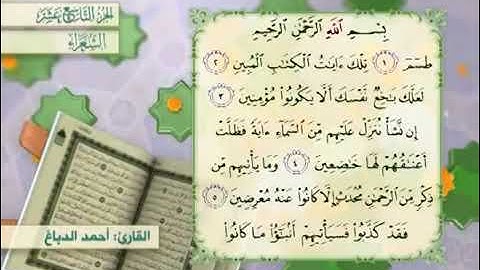 الجزء التاسع عشر
الشعراء
بِسْمِ اللَّهِ الرَّحْمَٰنِ الرَّحِيمِ
طسٓمٓ ١ تِلْكَ ءَايَٰتُ الْكِتَٰبِ الْمُبِينِ ٢
لَعَلَّكَ بَٰخِعٌ نَّفْسَكَ أَلَّا يَكُونُوا۟ مُؤْمِنِينَ ٣
إِن نَّشَأْ نُنَزِّلْ عَلَيْهِم مِّنَ السَّمَآءِ ءَايَةً فَظَلَّتْ
أَعْنَٰقُهُمْ لَهَا خَٰضِعِينَ ٤ وَمَا يَأْتِيهِم مِّن
ذِكْرٍ مِّنَ الرَّحْمَٰنِ مُحْدَثٍ إِلَّا كَانُوا۟ عَنْهُ مُعْرِضِينَ ٥
فَقَدْ كَذَّبُوا۟ فَسَيَأْتِيهِمْ أَنۢبَٰٓؤُا۟ مَا كَانُوا۟
القارئ: أحمد الدباغ